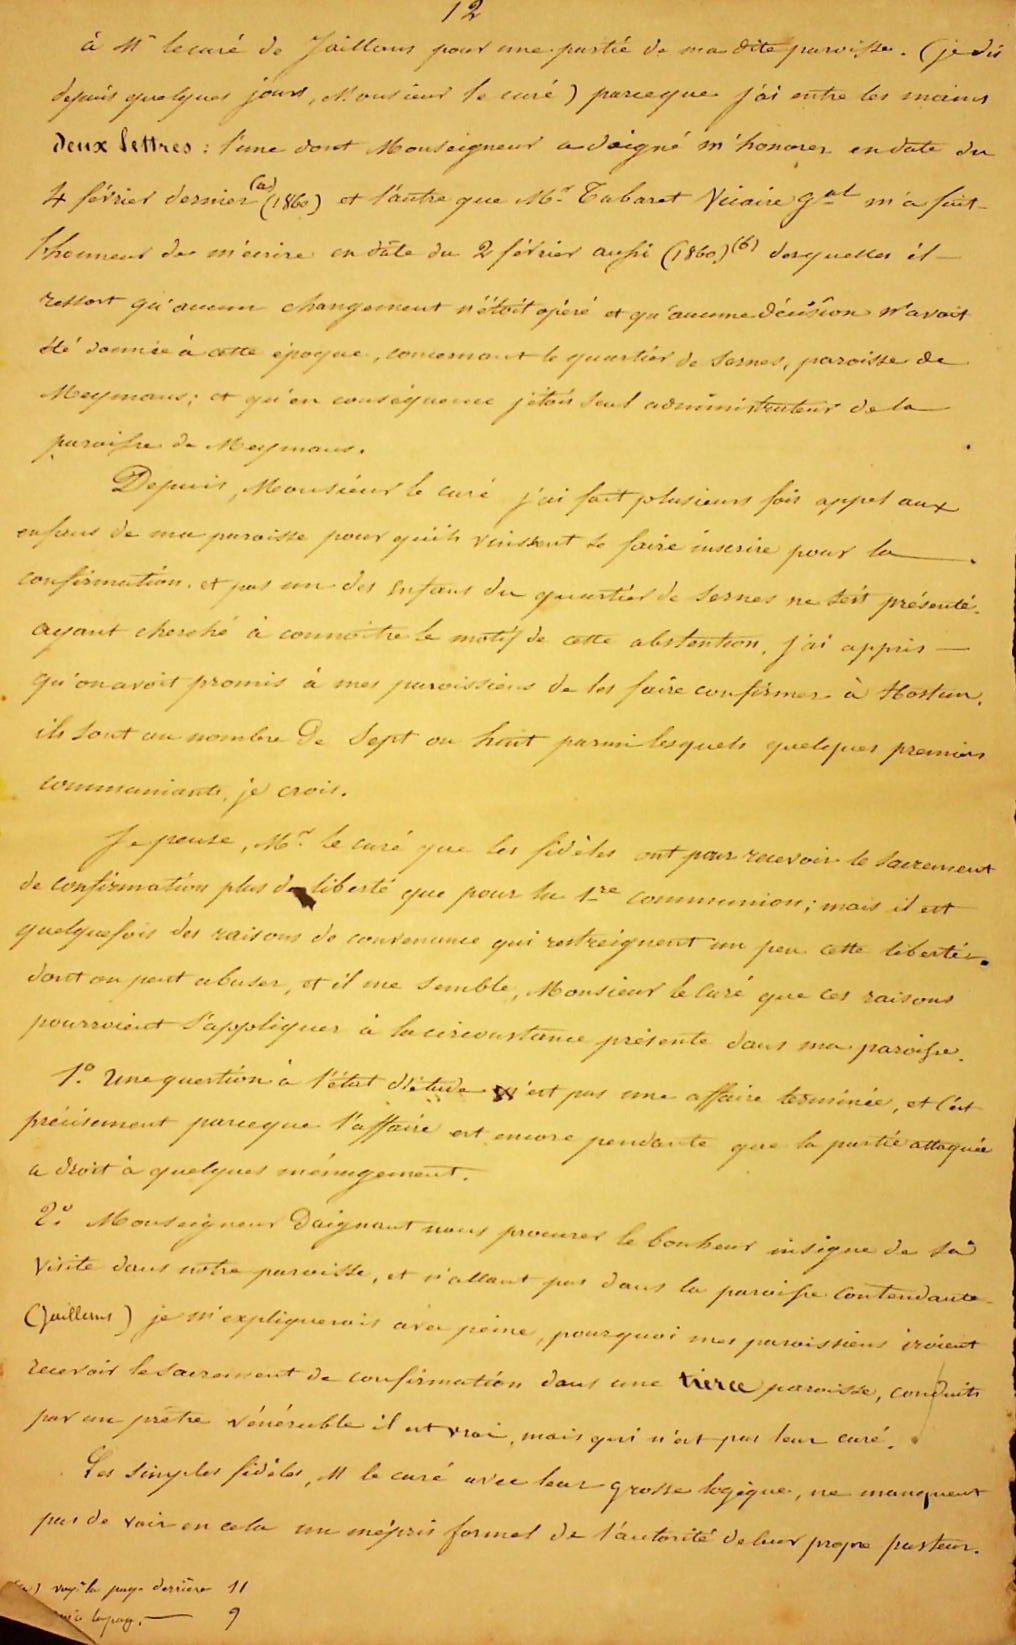 12
à Mr le curé de Jaillans pour une partie de ma dite paroisse. (je dis
depuis quelques jours, Monsieur le curé) parceque j'ai entre les mains
deux lettres : l'une dont Monseigneur a daigné m'honorer en date du
4 février dernier (a) (1860) et l'autre que Mr. Tabaret Vicaire gal m'a fait
l'honneur de m'écrire en date du 2 février aussi (1860) (b) desquelles il
ressort qu'aucun changement n'étoit opéré et qu'aucune décision n'avoit
été donnée à cette époque, concernant le quartier de Sernes, paroisse de
Meymans ; et qu'en conséquence j'étois seul administrateur de la
paroisse de Meymans.
Depuis, Monsieur le curé j'ai fait plusieurs fois appel aux
enfans de ma paroisse pour qu'ils vinssent se faire inscrire pour la
confirmation. et pas un des enfans du quartier de Sernes ne s'est présenté.
ayant cherché à connoître le motif de cette abstention, j'ai appris
qu'on avoit promis à mes paroissiens de les faire confirmer à Hostun.
ils sont au nombre de sept ou huit parmi lesquels quelques premiers
communiants, je crois.
Je pense, Mr. le curé que les fidèles ont pour recevoir le sacrement
de confirmation plus de liberté que pour la 1re communion ; mais il est
quelquefois des raisons de convenance qui restreignent un peu cette liberté
dont on peut abuser, et il me semble, Monsieur le Curé que ces raisons
pourroient s'appliquer à la circonstance présente dans ma paroisse.
1.° Une question à l'état d'étude n'est pas une affaire terminée, et c'est
précisement parceque l'affaire est encore pendante que la partie attaquée
a droit à quelques ménagement.
2.° Monseigneur daignant nous procurer le bonheur insigne de sa
visite dans notre paroisse, et n'allant pas dans la paroisse contendante
(Jaillans) je m'expliquerois avec peine, pourquoi mes paroissiens iroient
recevoir le sacrement de confirmation dans une tierce paroisse, conduits
par un prêtre vénérable il est vrai, mais qui n'est pas leur curé.
Les simples fidèles, M le curé avec leur grosse logique, ne manquent
pas de voir en cela un mépris formel de l'autorité de leur propre pasteur.
(a) voyz la page derrière 11
la pag. — 9